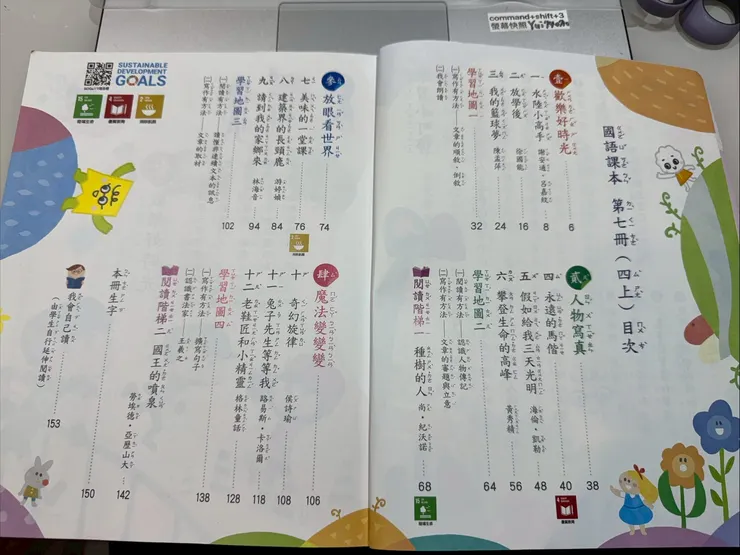 command+shift+3
螢幕快照
國語課本 第七冊（四上）目次
壹 歡樂好時光 6
一 水陸小高手 謝安通、呂嘉紋 8
二 放學後 徐國能 16
三 我的籃球夢 陳孟萍 24
學習地圖一 32
㈠寫作有方法——文章的順敘、倒敘
㈡我會朗讀
貳 人物寫真 38
四 永遠的馬偕 40
五 假如給我三天光明 海倫・凱勒 48
六 攀登生命的高峰 黃秀精 56
學習地圖二 64
㈠閱讀有方法——認識人物傳記
㈡寫作有方法——文章的審題與立意
閱讀階梯一 種樹的人 尚・紀沃諾 68
SUSTAINABLE
DEVELOPMENT
GOALS
參 放眼看世界 74
七 美味的一堂課 76
八 建築界的長頸鹿 游婷媜 84
九 請到我的家鄉來 林海音 94
學習地圖三 102
㈠閱讀有方法——讀懂非連續文本的訊息
㈡寫作有方法——文章的取材
肆 魔法變變變 106
十 奇幻旋律 侯詩瑜 108
十一 兔子先生等等我 路易斯・卡洛爾 118
十二 老鞋匠和小精靈 格林童話 128
學習地圖四 138
㈠寫作有方法——擴寫句子
㈡認識書法家——王羲之
閱讀階梯二 國王的噴泉 勞埃德・亞歷山大 142
本冊生字 150
我會自己讀 153
（由學生自行延伸閱讀）